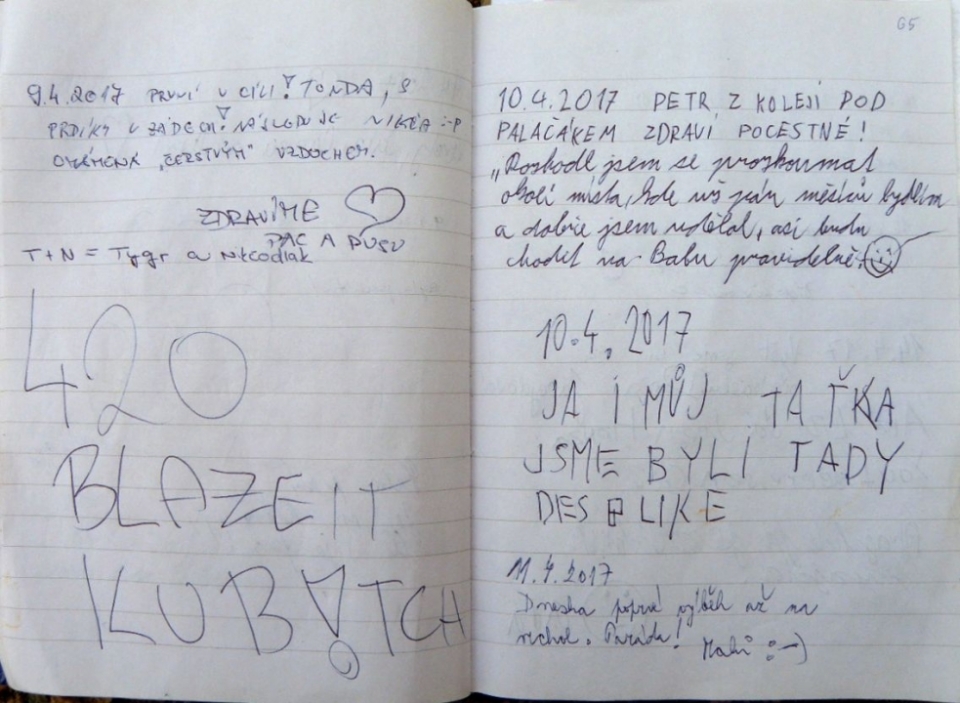 9.4.2017 PRVNÍ V CÍLI! TONDA, S
PRDÍKY V ZÁDECH! NÁSLEDUJE NIKČA :-P
OMÁMENA „ČERSTVÝM" VZDUCHEM.
ZDRAVÍME
PAC A PUSU
T+N = Tygr a Nlkodlak
420
BLAZEIT
KUB!TCH
65
10.4.2017 PETR Z KOLEJÍ POD
PALAČÁKEM ZDRAVÍ POCESTNÉ!
„Rozhodl jsem se prozkoumat
okolí místa, kde už pár měsíců bydlím
a dobře jsem udělal, asi budu
chodit na Babu pravidelně.
10.4.2017
JA I MŮJ TAŤKA
JSME BYLI TADY
DES LIKE
11.4.2017
Dneska poprvé výběh až na
vrchol. Paráda!
:-)